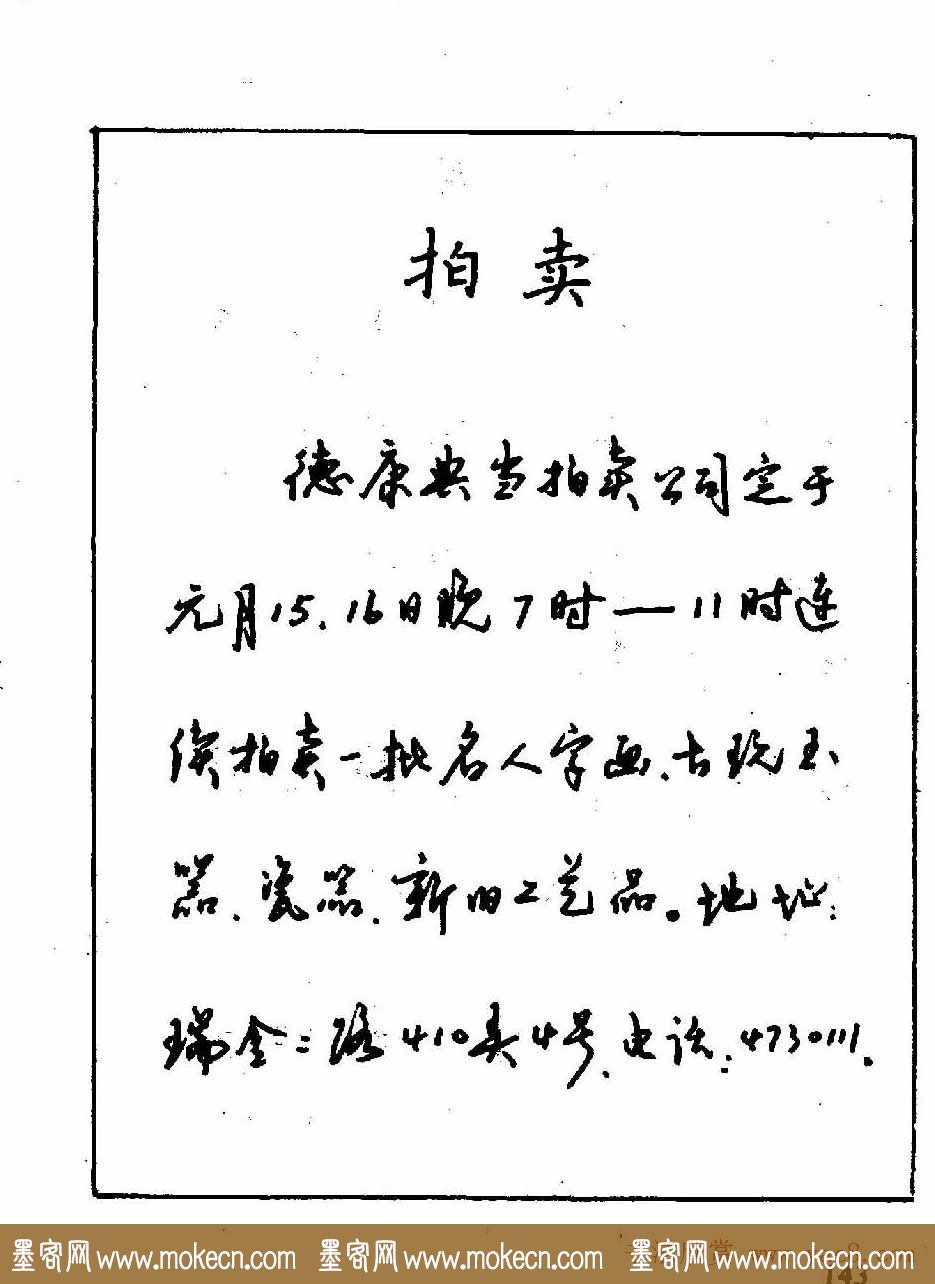 拍卖
德康典当拍卖公司定于
元月15、16日晚7时—11时连
续拍卖一批名人字画、古玩玉
器、瓷器、新旧工艺品。地址:
瑞金二路410弄4号、电话:4730111.
墨客网 www.mokecn.com 墨客网 www.mokecn.com 墨客网 www.mokecn.com
143